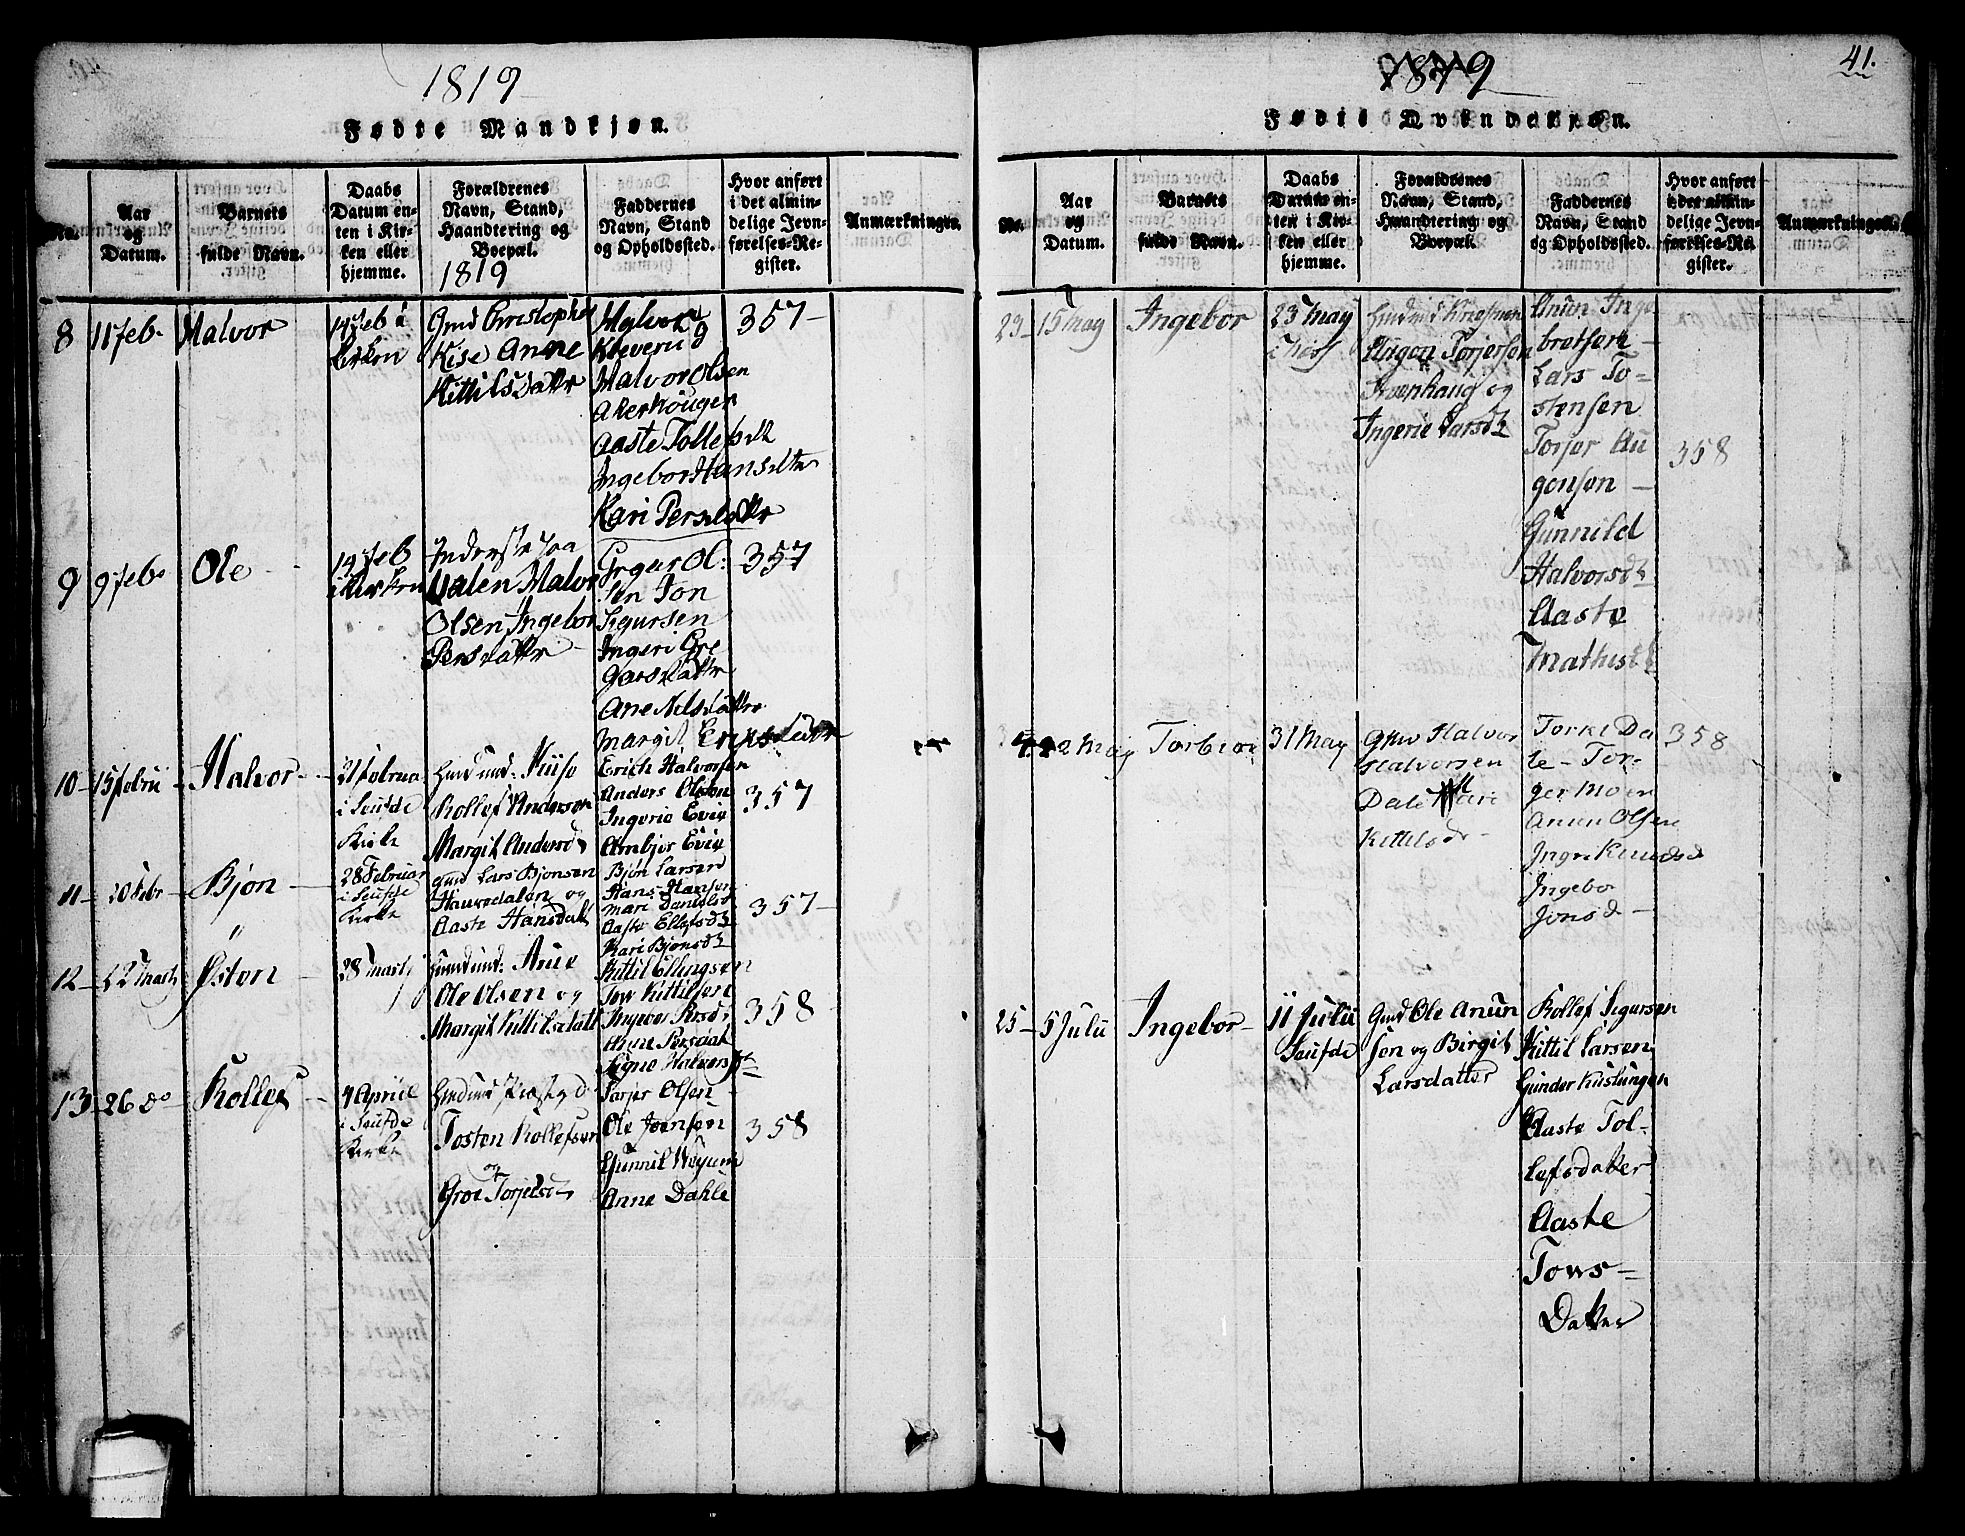 1819
Fødte Mandkjøn.
No.
Aar og Datum.
Barnets fulde Navn.
Daabs Datum enten i Kirken eller hjemme.
Forældrenes Navn, Stand, Haandtering og Boepæl.
1819
Faddernes Navn, Stand og Opholdssted.
Hvor anført i det almindelige Jevnførelses-Register.
Anmærkninger.
8
11 Feb.
Halvor
14 Feb i
Kirken
Gmd Christopher
Kise Anne
Kittilsdattr
Halvor
Kleverud
Halvor Olsen
Aaste Tollefsdtt
Ingebor Hansdtr
Kari Persdattr
357
9
9 Feb.
Ole
14 Feb
i Kirken
Inderste paa
Valen Halvor
Olsen Ingebor
Persdattr
Gregar Ol:
sen Jon
Sigursen
Ingeri Gre
garsdattr
Ane Nilsdattr
Margit Eriksdattr
357
10
15 Febru
Halvor
21 Februa
i Seufde
Kirke
Rollef Anderson
Margit Andersd
Erich Halvorsen
Anders Olson
Ingerie Evie
Ambjør Evie
357
11
20 Febr
Bjøn
28 Februar
i Seufde
Kirke
Gmd Lars Bjonsen
Haukedalen og
Aaste Hansdatt
Bjøn Larsen
Hans Hansen
Mari Danielsd
Aaste Ellefsd
Kari Bjønsd
357
12
22 Marty
Østen
28 Marty
Ole Olsen og
Margit Kittilsdatt
Kittil Ellingsen
Tov Kittilsen
Ingebor Persd
Ane Persdat
Signe Halvorsd
358
13
26 do
Rollef
4 Apriil
i Seufde
Kirke
Tosten Rollefsen
og
Groe Torjelsd
Torjer Olsen
Ole Joensen
Gunnil Wejum
Anne Dahle
358
41.
1819
Fødte Qvindekjøn.
No.
Aar og Datum.
Barnets fulde Navn.
Daabs Datum enten i Kirken eller hjemme.
Forældrenes Navn, Stand, Haandtering og Boepæl.
Faddernes Navn, Stand og Opholdssted.
Hvor anført i det almindelige Jevnførelses-Register.
Anmærkninger.
23
15 May
Ingebor
23 May
Augon Torjerson
Ingerie Larsd
Anun Inge
bretsen
Lars To-
stensen
Torjer Au
gonsen
Gunnild
Halvorsd
Aaste
Mathisd
358
22 May
Torbior
31 May
Gmd Halvor
Halvorsen
Dale Kari
Kittelsd
Torkel Da
le - Tor-
ger Moen
Anun Olsen
Ingr Knudsd
Ingebor
Jonsd
358
25
5 Julü
Ingebor
11 Julü
Seufde
Gmd Ole Anun
sen og Birgit
Larsdatter
Rollef Sigursen
Kittil Larsen
Gunder Kuslungen
Aaste Tol-
lefsdatter
Aaste
Tows-
Datter